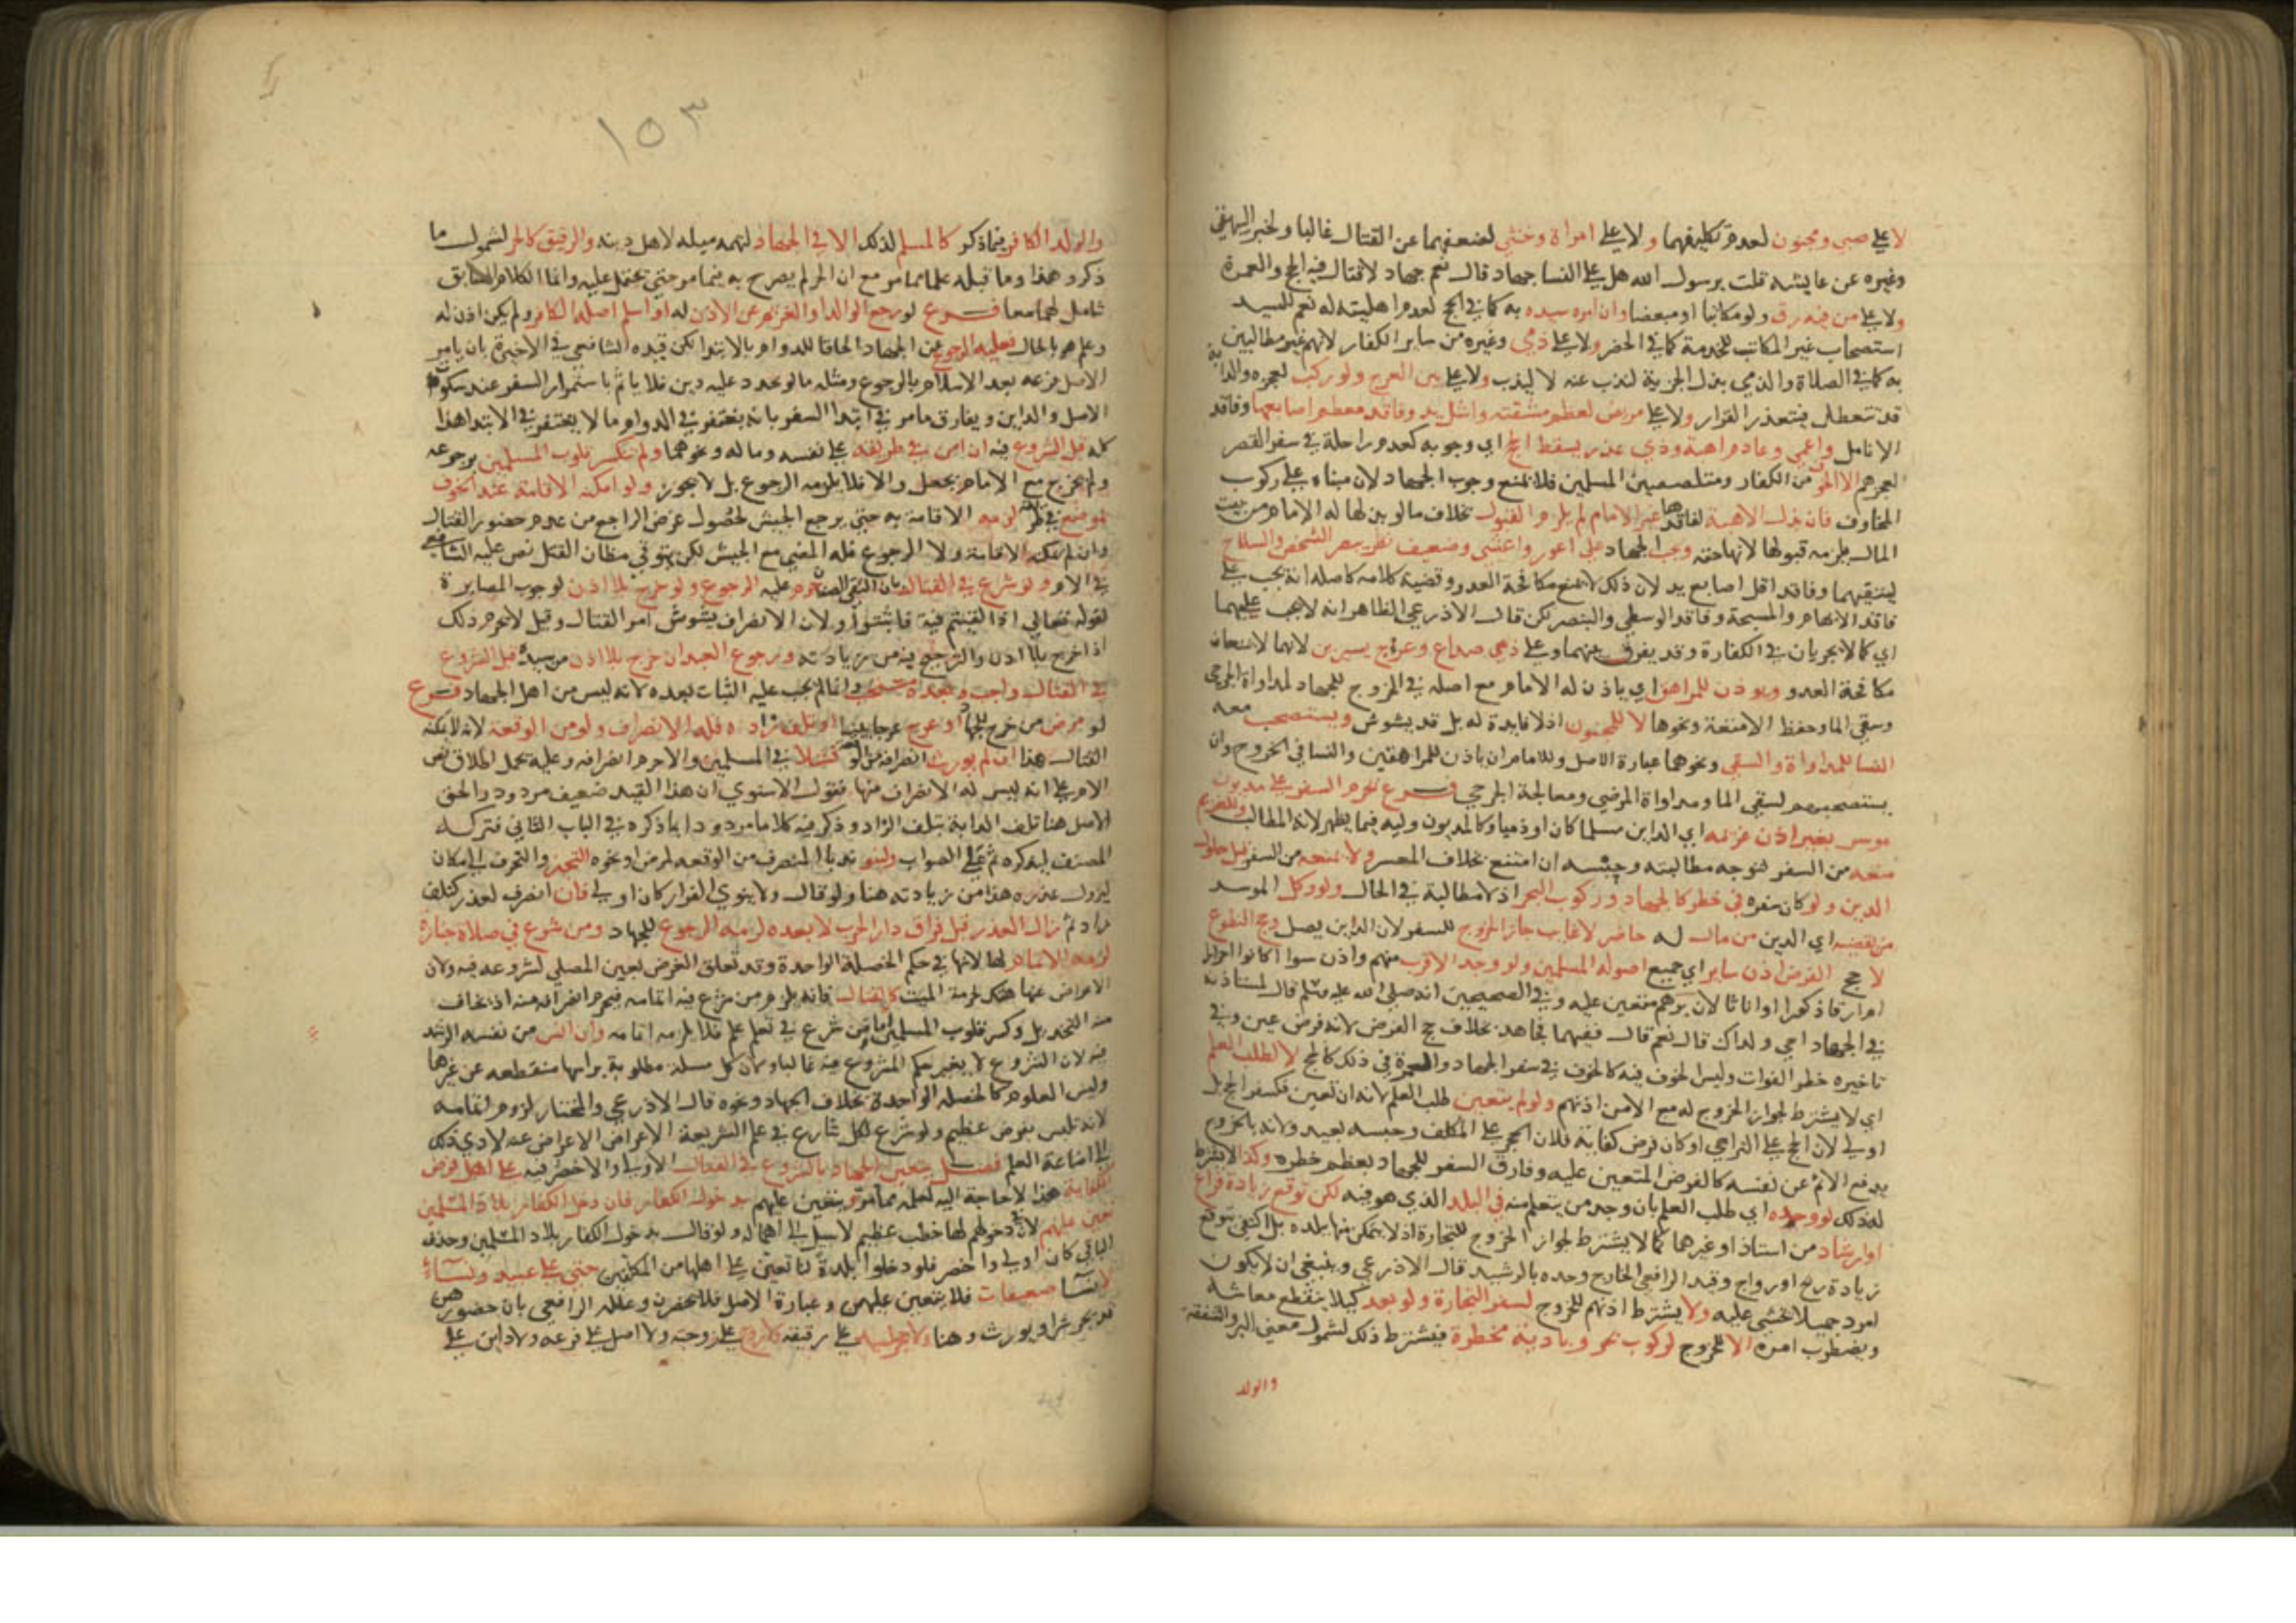 لا على صبي ومجنون لعدم تكليفهما ولا على امراة وخنثي لضعفهما عن القتال غالبا ولخبر البيهقي
وغيره عن عايشه قلت يرسول الله هل على النسا جهاد قال نعم جهاد لا قتال فيه الحج والعمرة
ولا على من فيه رق ولو مكاتبا او مبعضا وان امره سيده به كما في الحج لعدم اهليته له نعم للسيد
استصحاب غير المكاتب للخدمة كما في الحضر ولا على ذمي وغيره من ساير الكفار لانهم غير مطالبين
به كما في الصلاة والذمي بذل الجزية لنذب عنه لا ليذب ولا على بين العرج ولو ركب لعجزه والدابة
قد تتعطل فيتعذر الفرار ولا على مريض لعظم مشقته واشل يد وفاقد معظم اصابعها وفاقد
الانامل واعمي وعادم اهبة وذي عذر يسقط الحج اي وجوبه كعدم راحلة في سفر القصر
لعجزهم الا الخوف من الكفار ومتلصصين المسلمين فلا يمنع وجوب الجهاد لان مبناه على ركوب
المخاوف فان بذل الاهبة لفاقدها غير الامام لم يلزم القبول بخلاف ما لو بذلها له الامام من بيت
المال يلزمه قبولها لانها حقه ويجب الجهاد على اعور واعشي وضعيف نظر يبصر الشخص والسلاح
ليتقيهما وفاقد اقل اصابع يد لان ذلك لا يمنع مكافحة العدو وقضية كلامه كاصله انه يجب على
فاقد الابهام والمسبحة وفاقد الوسطي والبنصر لكن قال الاذرعي الظاهر انه لا يجب عليهما
اي كما لا يجزيان في الكفارة وقد يفرق بينهما وعلى ذي صداع وعرج يسيرين لانهما لا يمنعان
مكافحة العدو ويوذن للمراهق اي ياذن له الامام مع اصله في الخروج للجهاد لمداواة الجرحي
وسقي الما وحفظ الامتعة ونحوها لا للمجنون اذ لا فايدة له بل قد يشوش ويستصحب معه
النسا للمداواة والسقي ونحوهما عبارة الاصل وللامام ان ياذن للمراهقين والنسا في الخروج وان
يستصحبهم لسقي الما ومداواة المرضي ومعالجة الجرحي فرع يحرم السفر على مديون
موسر بغير اذن غريمه اي الداين مسلما كان او ذميا وكالمديون وليه فيما يظهر لانه المطالب وللغريم
منعه من السفر لتوجه مطالبته وحبسه ان امتنع بخلاف المعسر ولا يمنعه من السفر قبل حلول
الدين ولو كان سفره في خطر كالجهاد وركوب البحر اذ لا مطالبة في الحال ولو وكل الموسر
من يقضيه اي الدين من مال له حاضر لا غايب جاز الخروج للسفر لان الداين يصل وحج التطوع
لا حج الفرض اذن ساير اي جميع اصوله المسلمين ولو وجد الاقرب منهم واذن سوا اكانوا احرارا
ام ارقا ذكورا او اناثا لان برهم متعين عليه وفي الصحيحين انه صلى الله عليه وسلم قال لمستاذنه
في الجهاد احي ولداك قال نعم قال ففيهما فجاهد بخلاف حج الفرض لانه فرض عين وفي
تاخيره خطر الفوات وليس الخوف فيه كالخوف في سفر الجهاد والعمرة في ذلك كالحج لا لطلب العلم
اي لا يشترط لجواز الخروج له مع الامن اذنهم ولو لم يتعين طلب العلم لانه ان تعين فكسفر الحج بل
اولي لان الحج على التراخي او كان فرض كفاية فلان الحجر على المكلف وحبسه بعيد ولانه بالخروج
يدفع الاثم عن نفسه كالفرض المتعين عليه وفارق السفر للجهاد بعظم خطره وكذا لا يشترط
له ذلك لو وجده اي طلب العلم بان وجد من يتعلم منه في البلد الذي هو فيه لكن توقع زيادة فراغ
او ارشاد من استاذ او غيرهما كما لا يشترط لجواز الخروج للتجارة اذ لا يتمكن منها ببلده بل اكتفي بتوقع
زيادة ربح او رواج وقيد الرافعي الخارج وحده بالرشيد قال الاذرعي وينبغي ان لا يكون
امرد جميلا يخشي عليه ولا يشترط اذنهم للخروج لسفر التجارة ولو بعد كيلا ينقطع معاشه
ويضطرب امره الا للخروج لركوب بحر وبادية مخطرة فيشترط ذلك لشمول معني البر والشفقة
والولد
١٥٣
والولد الكافر فيما ذكر كالمسلم لذلك الا في الجهاد لتهمة ميله لاهل دينه والرقيق كالحر لشمول ما
ذكر وهذا وما قبله علما مما مر مع ان الحر لم يصرح به فيما مر حتي يحمل عليه وانما الكلام السابق
شامل لهما معا فرع لو رجع الوالد او الغريم عن الاذن له او اسلم اصله الكافر ولم يكن اذن له
وعلم هو بالحال فعليه الرجوع من الجهاد الحاقا للدوام بالابتدا لكن قيده الشافعي في الاخيرة بان يامر
الاصل فرعه بعد الاسلام بالرجوع ومثله ما لو تجدد عليه دين فلا ياثم باستمرار السفر عند سكوت
الاصل والداين ويفارق ما مر في ابتدا السفر بانه يغتفر في الدوام ما لا يغتفر في الابتدا هذا
كله قبل الشروع فيه ان امن في طريقه على نفسه وماله ونحوهما ولم تنكسر قلوب المسلمين برجوعه
ولم يخرج مع الامام بجعل والا فلا يلزمه الرجوع بل لا يجوز ولو امكنه الاقامة عند الخوف
بموضع في طريقه لزمه الاقامة به حتي يرجع الجيش لحصول غرض الراجع من عدم حضور القتال
وان لم يمكنه الاقامة ولا الرجوع فله المضي مع الجيش لكن يتوقي مظان القتل نص عليه الشافعي
في الام ولو شرع في القتال بان التقي الصفان حرم عليه الرجوع ولو خرج بلا اذن لوجوب المصابرة
لقوله تعالي اذا لقيتم فية فاثبتوا ولان الانصراف يشوش امر القتال وقيل لا يحرم ذلك
اذا خرج بلا اذن والترجيح فيه من زيادته ورجوع العبد ان خرج بلا اذن من سيده قبل الشروع
في القتال واجب وبعده مستحب وانما لم يجب عليه الثبات بعده لانه ليس من اهل الجهاد فرع
لو مرض من خرج للجهاد او عرج عرجا بينا او تلف زاده فله الانصراف ولو من الوقعة لانه لا يمكنه
القتال هذا ان لم يورث انصرافه من الوقعة فشلا في المسلمين والا حرم انصرافه وعليه يحمل اطلاق نص
الام على انه ليس له الانصراف منها فقول الاسنوي ان هذا القيد ضعيف مردود والحق
الاصل هنا تلف الدابة بتلف الزاد وذكر فيه كلاما مردودا بما ذكره في الباب الثاني فتركه
المصنف ليذكره ثم على الصواب ولينو ندبا المنصرف من الوقعة لمرض او نحوه التحيز والتحرف الى مكان
ليزول عذره هذا من زيادته هنا ولو قال ولا ينوي الفرار كان اولي فان انصرف لعذر كتلف
زاد ثم زال العذر قبل فراق دار الحرب لا بعده لزمه الرجوع للجهاد ومن شرع في صلاة جنازة
لزمه الاتمام لها لانها في حكم الخصلة الواحدة وقد تعلق الفرض بعين المصلي لشروعه فيه ولان
الاعراض عنها هتك لحرمة الميت كالقتال فانه يلزم من شرع فيه اتمامه فيحرم انصرافه منه اذ يخاف
منه التخذيل وكسر قلوب المسلمين اما من شرع في تعلم علم فلا يلزمه اتمامه وان انس من نفسه الرشد
فيه لان الشروع لا يغير حكم المشروع فيه غالبا ولان كل مسلة مطلوبة براسها منقطعه عن غيرها
وليس العلوم كالخصلة الواحدة بخلاف الجهاد ونحوه قال الاذرعي والمختار لزوم اتمامه
لانه تلبس بفرض عظيم ولو شرع لكل شارع في علم الشريعة الاعراض عنه لادي ذلك
الى اضاعة العلم فصل يتعين الجهاد بالشروع في القتال الاولي والاخصر فيه على اهل فرض
الكفاية هذا لا حاجة اليه لعلمه مما مر ويتعين عليهم بدخول الكفار فان دخل الكفار بلاد المسلمين
تعين عليهم لان دخولهم لها خطب عظيم لا سبيل الى اهماله ولو قال بدخول الكفار بلاد المسلمين وحذف
الباقي كان اولي واخصر فلو دخلوا بلدة لنا تعين على اهلها من المكلفين حتي على عبيد ونساء
لا نسا ضعيفات فلا يتعين عليهن وعبارة الاصل فلا يحضرن وعلله الرافعي بان حضورهن
قد يجر شرا ويورث وهنا ولا حجر لسيد على رقيقه ولا زوج على زوجته ولا اصل على فرعه ولا داين على